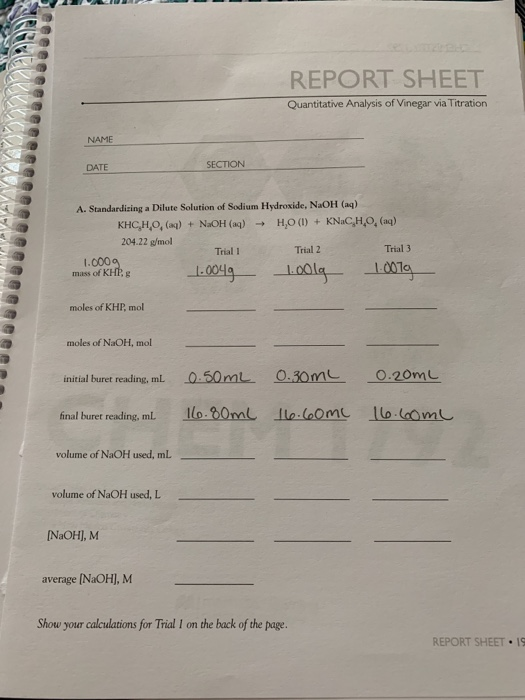 REPORT SHEET
Quantitative Analysis of Vinegar via Titration
NAME
DATE SECTION
A. Standardizing a Dilute Solution of Sodium Hydroxide, NaOH (aq)
KHC₈H₄O₄ (aq) + NaOH (aq) → H₂O (l) + KNaC₈H₄O₄ (aq)
204.22 g/mol
Trial 1 Trial 2 Trial 3
1.000g
mass of KHP, g 1.004g 1.001g 1.007g
moles of KHP, mol
moles of NaOH, mol
initial buret reading, mL 0.50mL 0.30mL 0.20mL
final buret reading, mL 16.80mL 16.60mL 16.60mL
volume of NaOH used, mL
volume of NaOH used, L
[NaOH], M
average [NaOH], M
Show your calculations for Trial 1 on the back of the page.
REPORT SHEET • 15